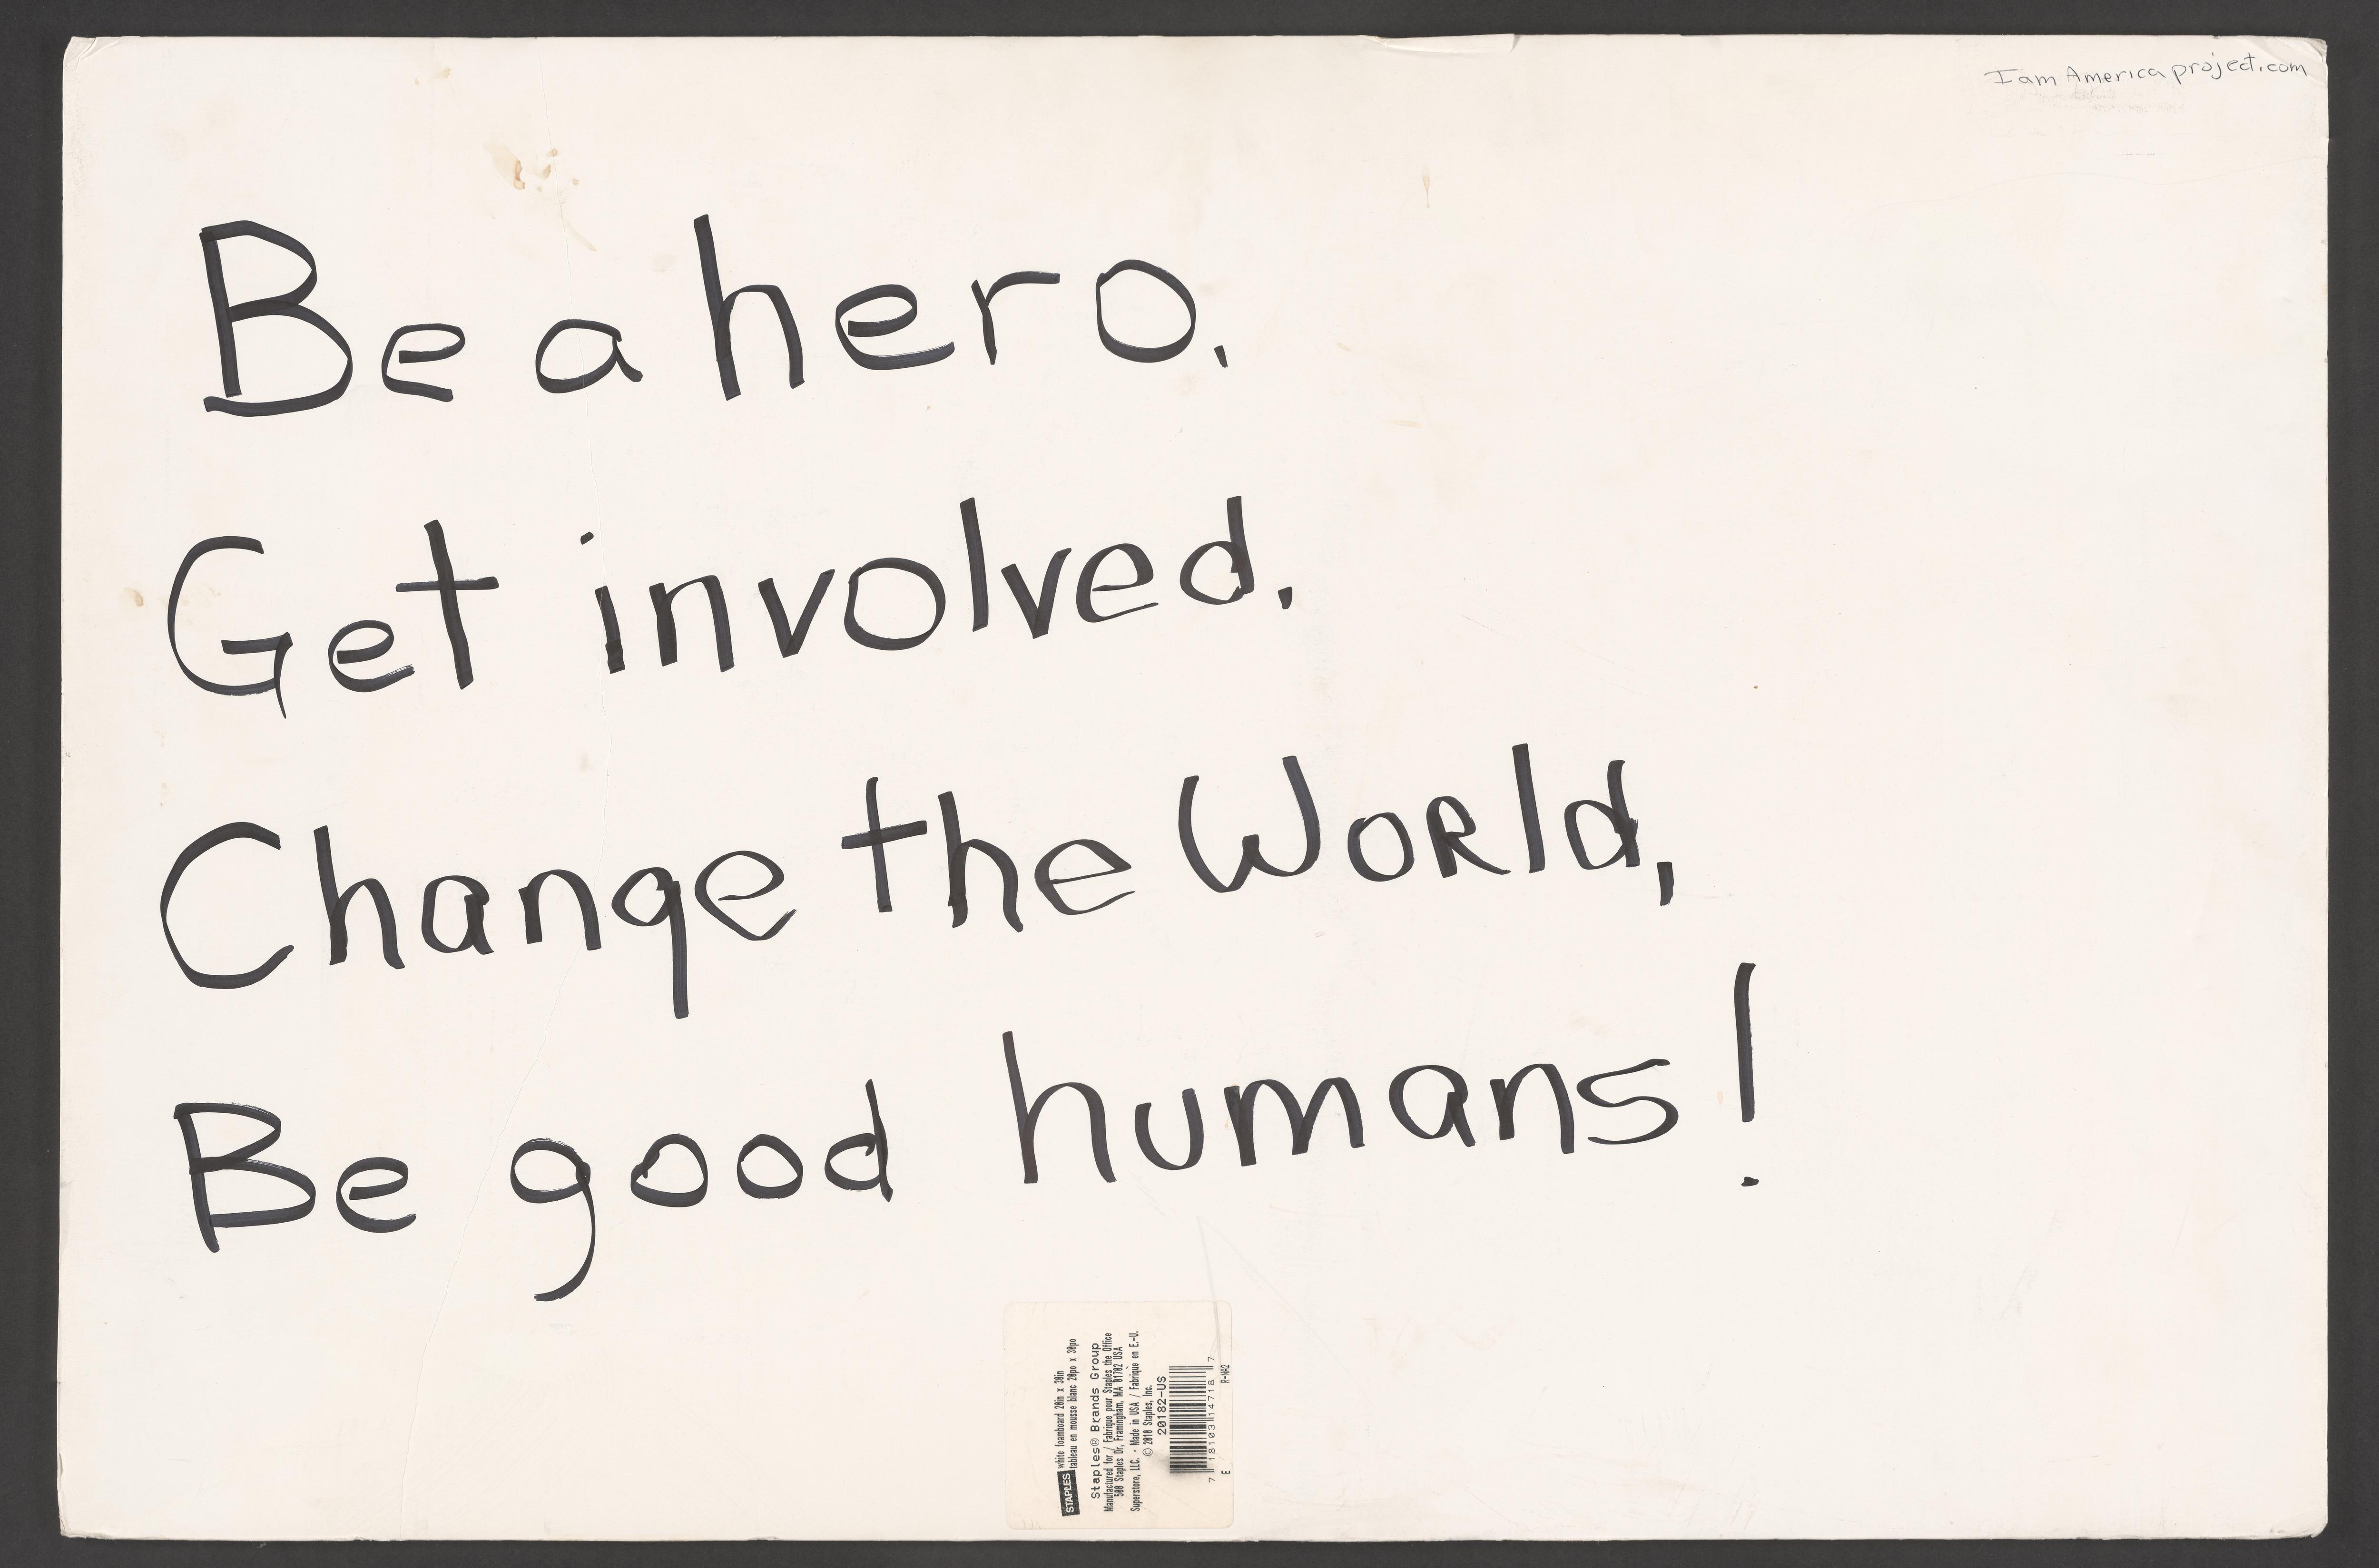 I am America project.com
Be a hero.
Get involved.
Change the WoRld,
Be good humans!
STAPLES white foamboard 20in x 30in
tableau en mousse blanc 20po x 30po
Staples® Brands Group
Manufactured for / Fabrique pour Staples the Office
500 Staples Dr, Framingham, MA 01702 USA
Superstore, LLC. - Made in USA / Fabrique en E.-U.
© 2018 Staples, Inc.
20182-US
7 18103 14718 7
E R-NA2